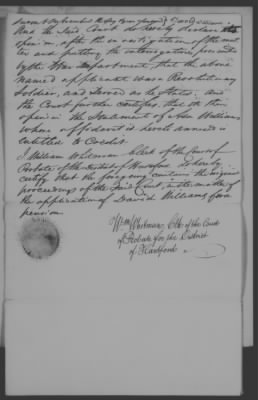 And the said Court do hereby declare
opinion, after the investigation of the mat
ter and putting the interrogatories prescribed
by the War Department, that the above
named applicant was a Revolutionary
Soldier, and served as he states; and
the Court further certifies, that it is their
opinion the Statement of Williams
whose affidavit is hereto annexed is
entitled to Credit
I William Whitman Clerk of the Court of
Probate of the district of Hartford do hereby
certify that the foregoing contains the original
proceedings of the said Court, in the matter of
the application of David Williams for a
pension.
Wm Whitman Clk of the Court
of Probate for the District
of Hartford